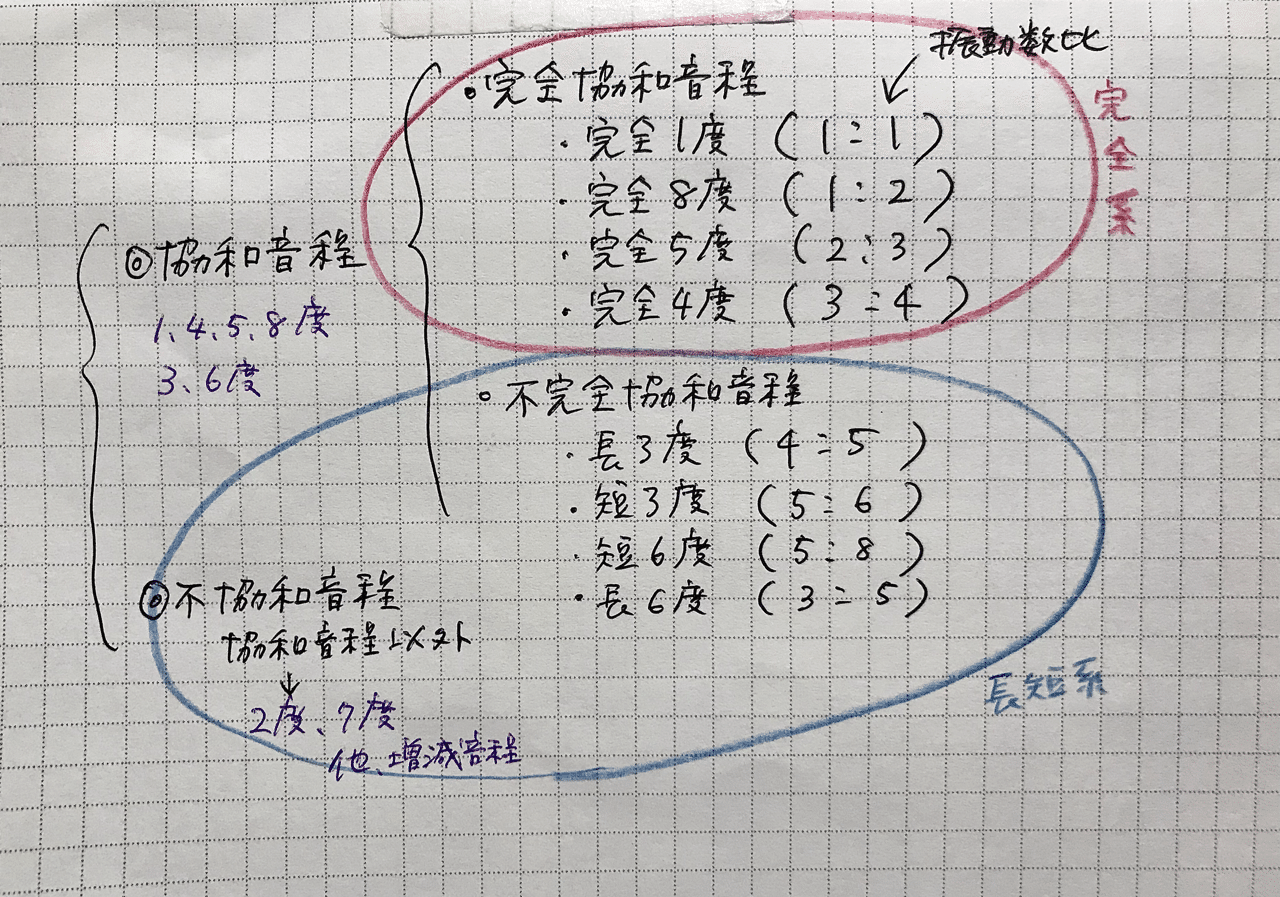 振動数比
完全系
◎協和音程
1、4、5、8度
3、6度
・完全協和音程
・完全1度 (1:1)
・完全8度 (1:2)
・完全5度 (2:3)
・完全4度 (3:4)
・不完全協和音程
・長3度 (4:5)
・短3度 (5:6)
・短6度 (5:8)
・長6度 (3:5)
◎不協和音程
協和音程以外
↓
2度、7度
他、増減音程
長短系